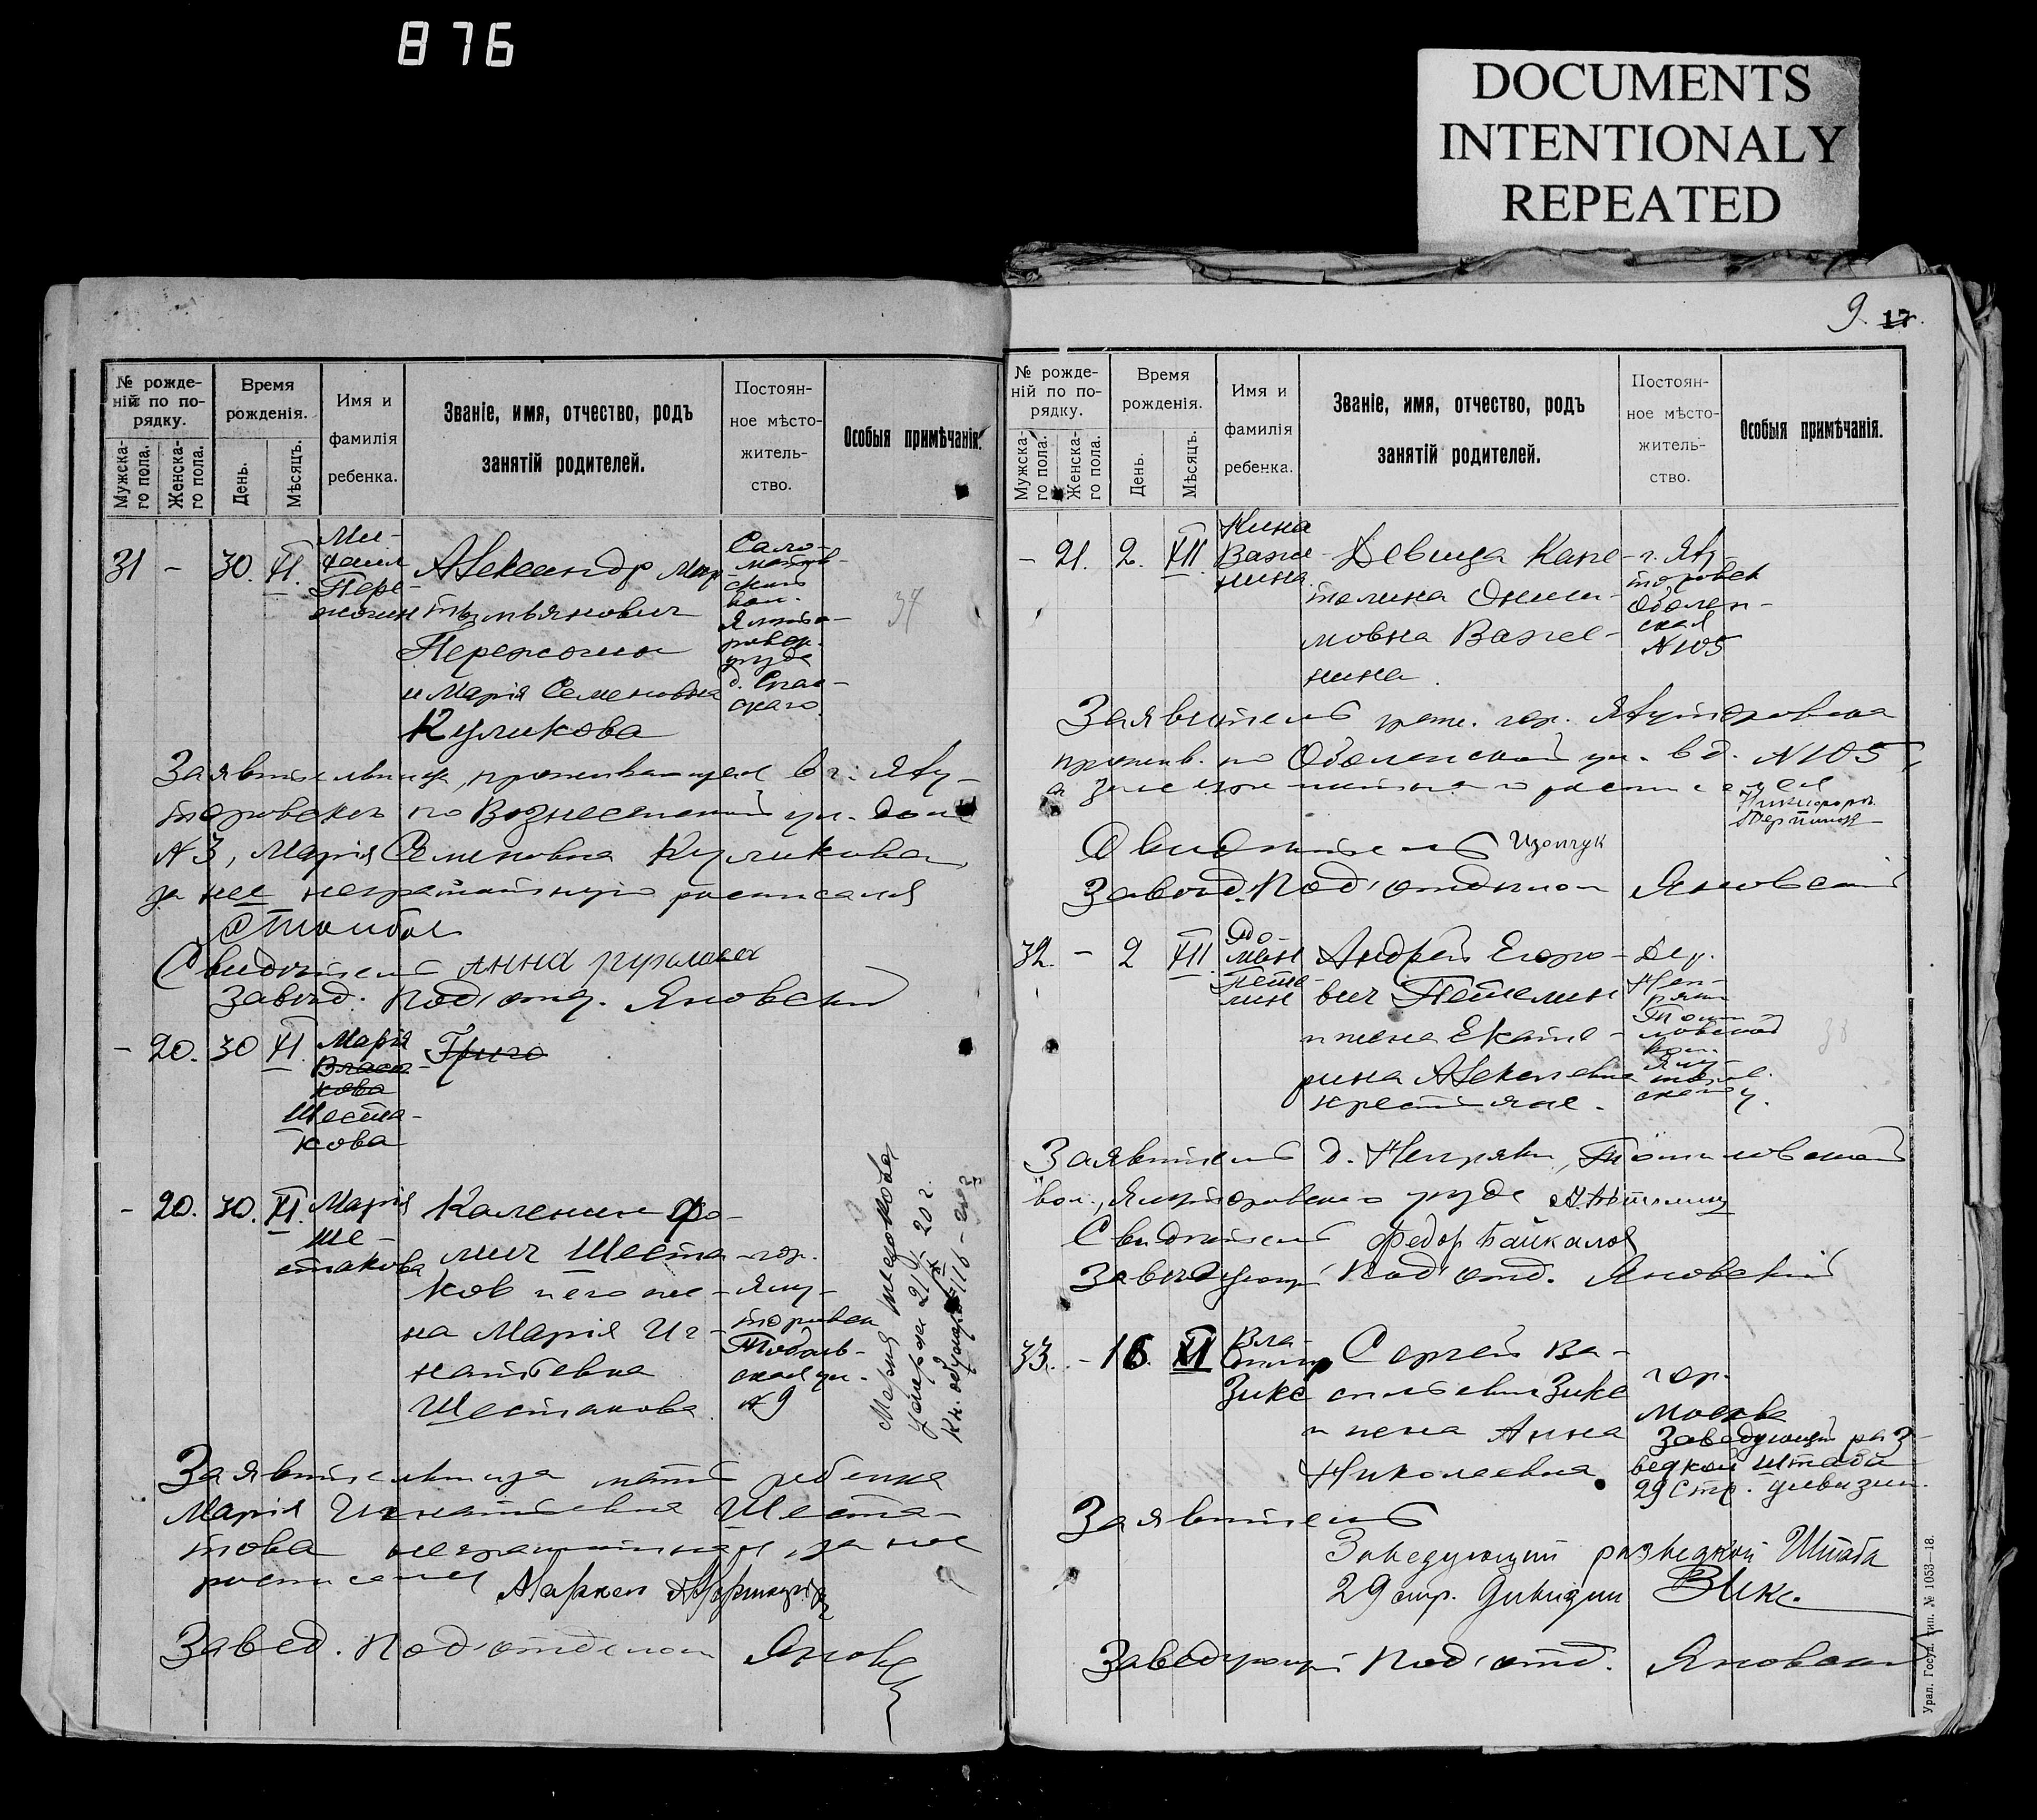 876
DOCUMENTS
INTENTIONALY
REPEATED
№ рожде-
ній по по-
рядку.
Мужска-
го пола.
Женска-
го пола.
Время
рожденія.
День.
Мѣсяцъ.
Имя и
фамилія
ребенка.
Званіе, имя, отчество, родъ
занятій родителей.
Постоян-
ное мѣсто-
житель-
ство.
Особыя примѣчанія.
31 - 30. XI.
Ми-
хаил
Пере-
жогин
Александр
Пережогин
и Марія Семеновна
Куликова
Сало-
вол.
Ялуто-
ровск.
уезда
д. Спас-
скаго
37
Заявительница, проживающая в г. Ялу-
торовске по Вознесенской ул. доме
№ 3, Марія Семеновна Куликова,
за нее неграмотную росписался
Свидетель Анна
Завед. Под'отд. Яновский
- 20. 30 XI
Марія
Шеста-
кова
Григо
- 20. 30. XI.
Марія
Ше-
стакова
Каленик Фо-
мич Шеста-
ков и его же-
на Марія Иг-
натьевна
Шестакова
гор.
Ялу-
торовск
Тобольск-
ская ул.
№ 9
Мария Шестакова
умерла 21/XI 20 г.
Заявительница мать ребенка
Марія Игнатьевна Шеста-
кова неграмотная, за нее
росписался
Завед. Под'отделом Яновск
9 17.
№ рожде-
ній по по-
рядку.
Мужска-
го пола.
Женска-
го пола.
Время
рожденія.
День.
Мѣсяцъ.
Имя и
фамилія
ребенка.
Званіе, имя, отчество, родъ
занятій родителей.
Постоян-
ное мѣсто-
житель-
ство.
Особыя примѣчанія.
- 21. 2. XII.
Нина
Важе-
нина
Девица Капи-
толина Ониси-
мовна Важе-
нина.
г. Ялу-
торовск
Оболен-
ская
№ 105
Заявитель граж. гор. Ялуторовска
прожив. по Оболенской ул. в д. № 105,
а за неграмотную росписался
Свидетель
Завед. Под'отделом Яновский
32. - 2 XII.
Ро-
ман
Пете-
лин
Андрей Егоро-
вич Петелин
и жена Екате-
рина Алексеевна
крестьяне.
Дер.
Неп-
ряхи
Томи-
ловской
вол.
Ялу-
торов-
скаго у.
38
Заявитель д. Непряхи, Томиловской
вол., Ялуторовскаго уезда
Свидетель Федор Байкалов
Заведующий Под'отд. Яновский
33. - 16. XI
Вла-
димир
Зикс
Сергей Ва-
сильевич Зикс
и жена Анна
Николаевна.
гор.
Москва
Заведующий раз-
ведкой Штаба
29 Стр. дивизии.
Заявитель
Заведующий разведкой Штаба
29 стр. дивизии Зикс.
Заведующий Под'отд. Яновский
Урал. Госуд. тип. № 1053—18.